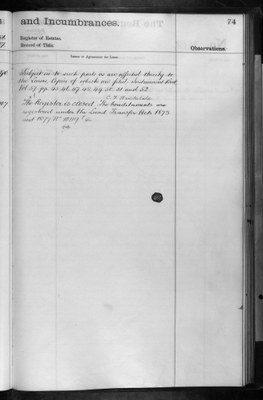 and Incumbrances.
74
Register of Estates.
Record of Title.
Observations.
Lease or Agreement for Lease.
Subject as to such part as are affected thereby to
the Leases, Copies of which are filed Instrument Book
45. 46. 47. 48. 49. 50. 51 and 52.
The Register is closed. The Hereditaments are
registered under the Land Transfer Acts 1875
and 1897 No